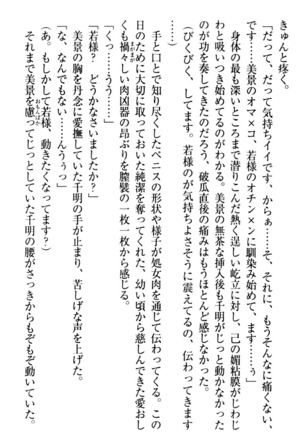 きゅんと疼く。
「だって、だって気持ちイイです、からぁ……そ、それに、もうそんなに痛くない、
です……美景のオマンコ、若様のオチンメンに馴染み始めて、ます……ぅ」
身体の最も深いところまで潜りこんだ熱く逞しい屹立に対し、己の媚粘膜がじわじ
わと吸いつき始めてるのがわかる。美景の無茶な挿入後も千明がじっと動かなかった
のが功を奏してきたのだろう、破瓜直後の痛みはもうほとんど感じなかった。
（びくびく、してます。若様のが気持ちよさそうに震えてるの、伝わってきます
手と口とで知り尽くしたペニスの形状や様子が処女肉を通じて伝わってくる。この
日のために大切に取っておいた純潔を奪ってくれた、幼い頃から慈しんできた愛おし
くも禍々しい肉凶器の昂ぶりを膣襞の一枚一枚から感じる。
「くっ……うう……」
「若様？　どうかなさいましたか？」
美景の胸を丹念に愛撫していた千明の手が止まり、苦しげな声を上げた。
「な、なんでもない……んうぅっ」
（あ。もしかして若様、動きたくなってます？）
それまで美景を慮ってじっとしていた千明の腰がさっきからもぞもぞ動いていた。